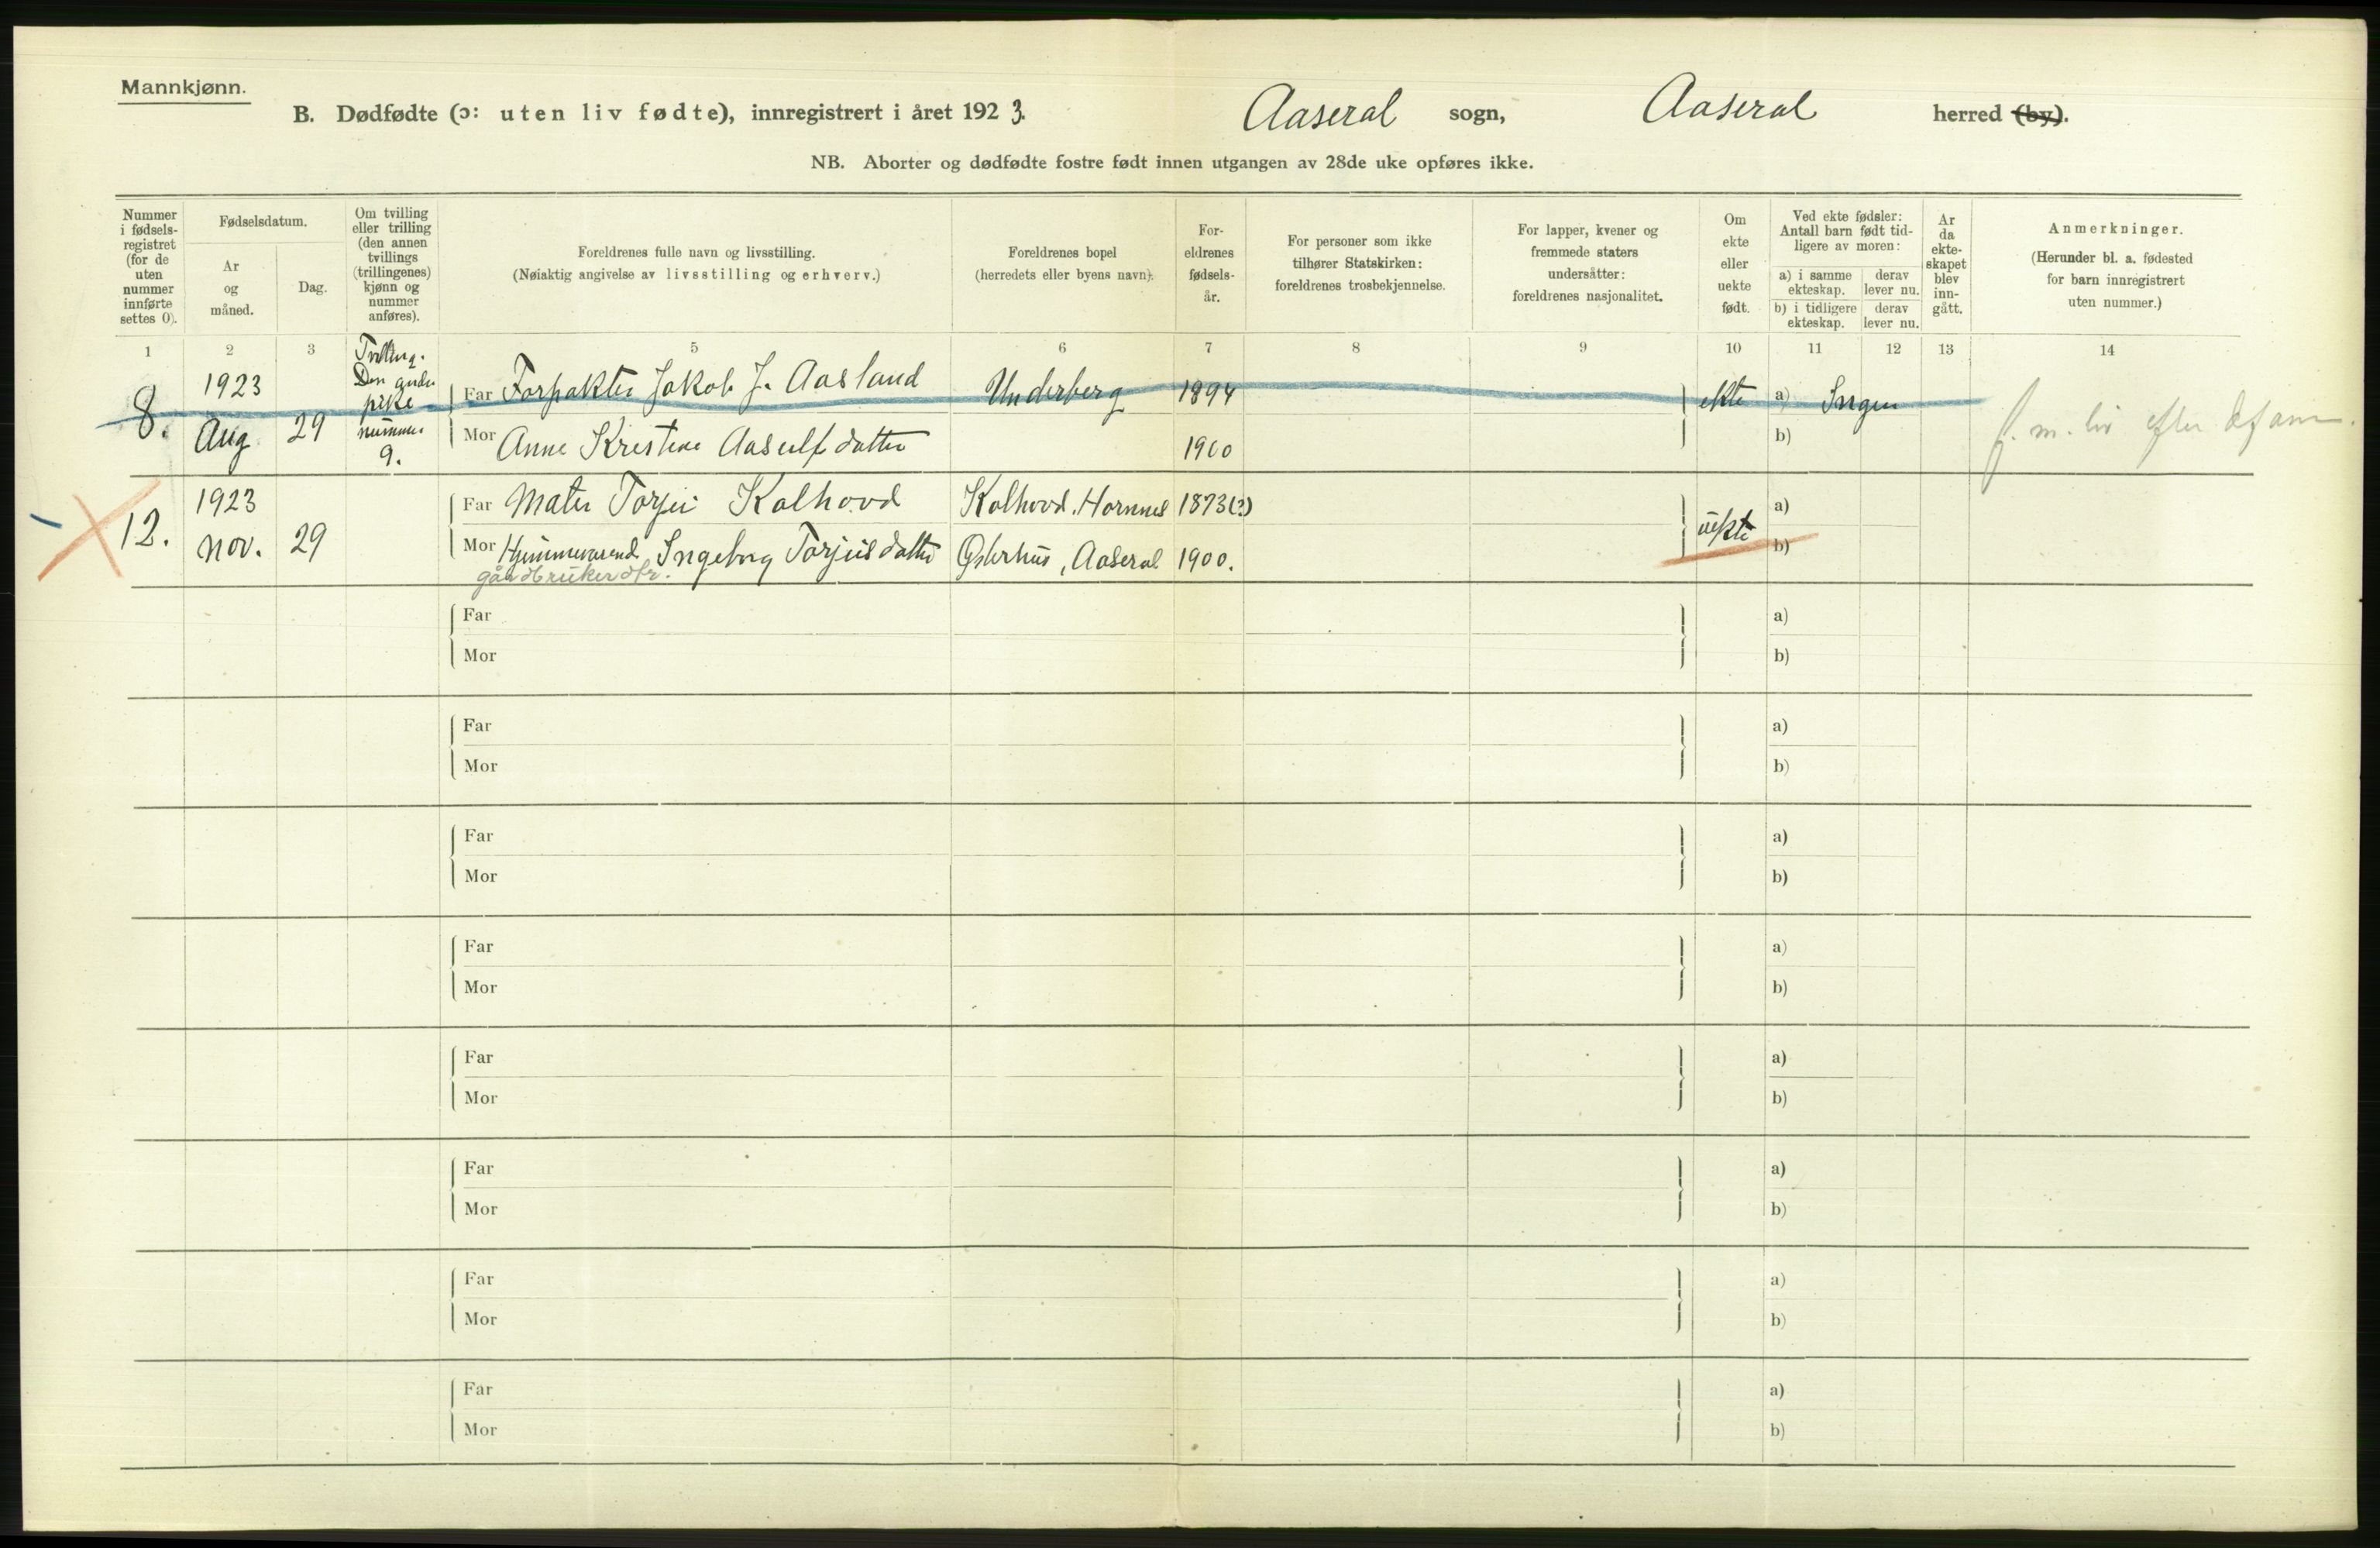 Mannkjønn.
B. Dødfødte (ɔ: uten liv fødte), innregistrert i året 1923. Aaseral sogn, Aaseral herred (by).
NB. Aborter og dødfødte fostre født innen utgangen av 28de uke opføres ikke.
Nummer i fødsels-registret (for de uten nummer innførte settes 0).
Fødselsdatum.
År og måned.
Dag.
Om tvilling eller trilling (den annen tvillings (trillingenes) kjønn og nummer anføres).
Foreldrenes fulle navn og livsstilling.
(Nøiaktig angivelse av livsstilling og erhverv.)
Foreldrenes bopel
(herredets eller byens navn).
For-eldrenes fødsels-år.
For personer som ikke tilhører Statskirken: foreldrenes trosbekjennelse.
For lapper, kvener og fremmede staters undersåtter: foreldrenes nasjonalitet.
Om ekte eller uekte født.
Ved ekte fødsler: Antall barn født tid-ligere av moren:
a) i samme ekteskap. derav lever nu.
b) i tidligere ekteskap. derav lever nu.
År da ekte-skapet blev inn-gått.
Anmerkninger.
(Herunder bl. a. fødested for barn innregistrert uten nummer.)
1 2 3 5 6 7 8 9 10 11 12 13 14
8. 1923 Aug 29
Tvilling. Den andre pike nummer 9.
Far Forpakter Jakob J. Aasland Underberg 1894 ekte a) Ingen
Mor Anne Kristine Aasulfsdatter 1900 b)
f. m. liv efter
12. 1923 Nov. 29
Far Mater Torjei Kalhovd Kolhovd. Hornnes 1873(?) uekte a)
Mor Hjemmeværende Ingeborg Torjusdatter Østerhus, Aaseral 1900. b)
gårdbrukerdtr.
Far a)
Mor b)
Far a)
Mor b)
Far a)
Mor b)
Far a)
Mor b)
Far a)
Mor b)
Far a)
Mor b)
Far a)
Mor b)
Far a)
Mor b)